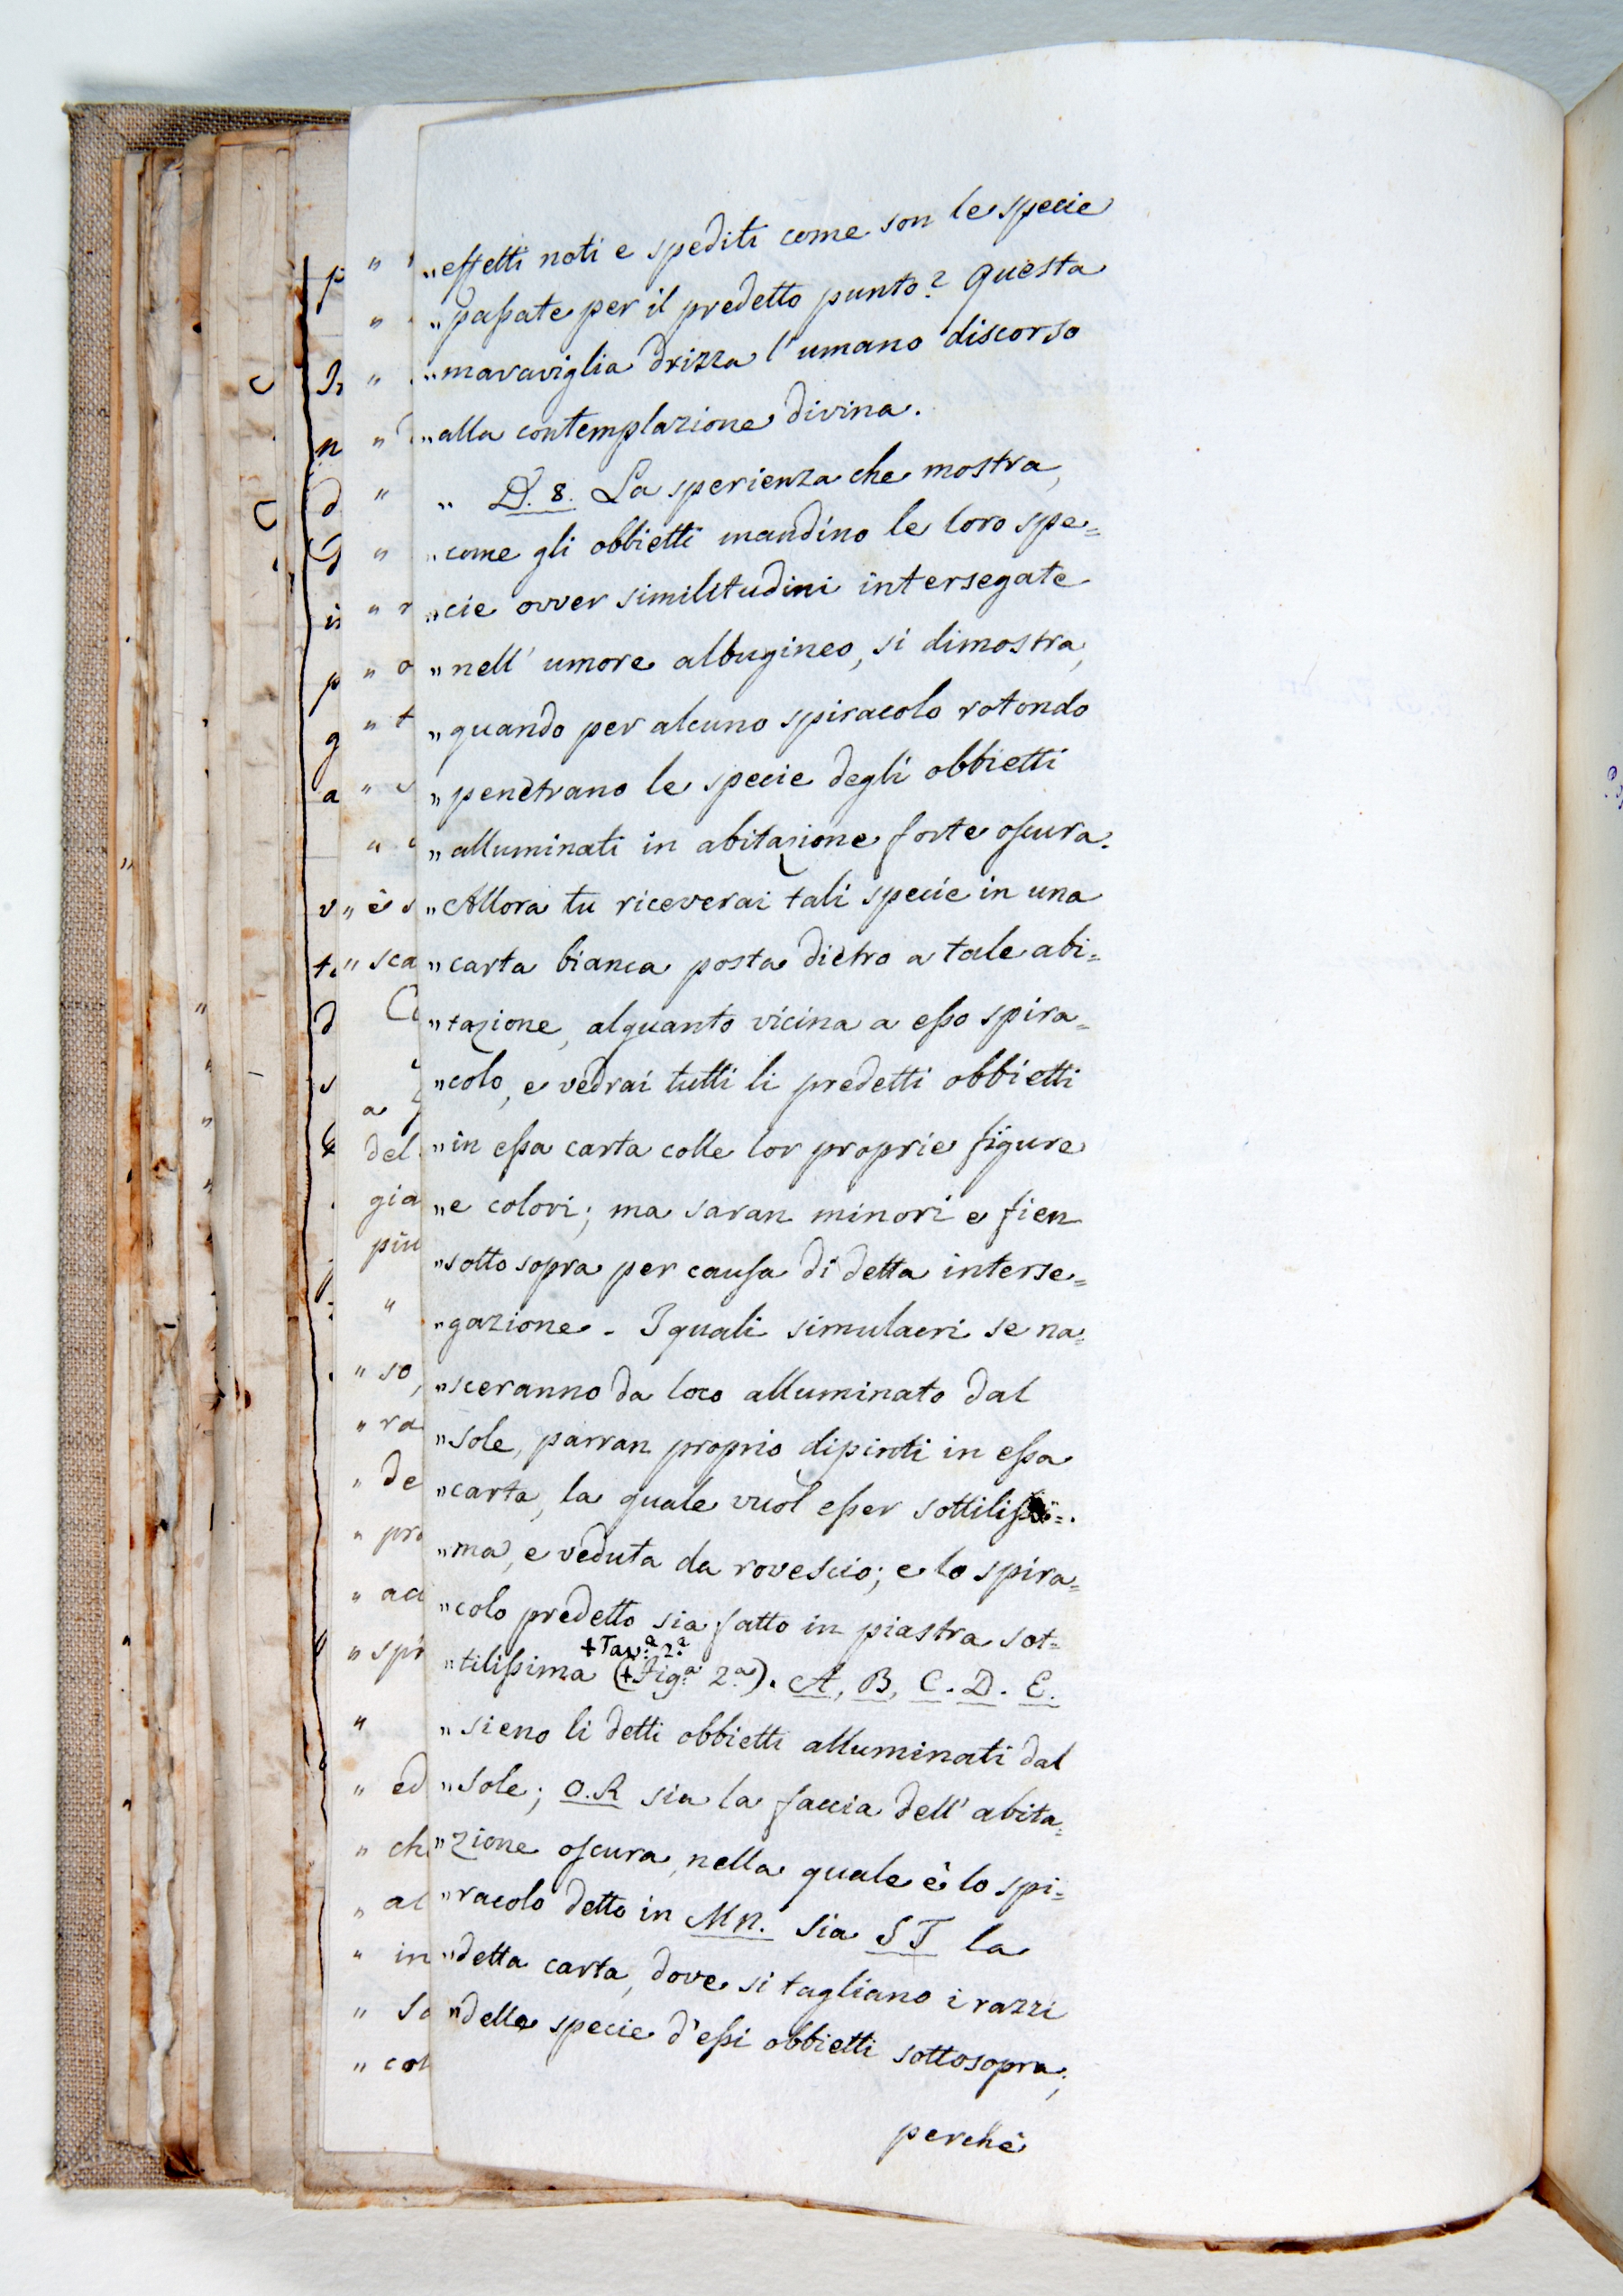 „effetti noti e spediti come son le specie
„paſsate per il predetto punto? Questa
„maraviglia drizza l'umano discorso
„alla contemplazione divina.
„ D. 8. La sperienza che mostra,
„come gli obbietti mandino le loro spe=
„cie ovver similitudini intersegate
„nell' umore albugineo, si dimostra,
„quando per alcuno spiracolo rotondo
„penetrano le specie degli obbietti
„alluminati in abitazione forte oſcura.
„Allora tu riceverai tali specie in una
„carta bianca posta dietro a tale abi=
„tazione, alquanto vicina a eſso spira=
„colo, e vedrai tutti li predetti obbietti
„in eſsa carta colle lor proprie figure
„e colori; ma saran minori e fien
„sotto sopra per cauſa di detta interse=
„gazione. I quali simulacri se na=
„sceranno da loco alluminato dal
„sole, parran proprio dipinti in eſsa
„carta, la quale vuol eſser sottiliſsi=
„ma, e veduta da rovescio; e lo spira=
„colo predetto sia fatto in piastra sot=
+Tav.ª 2.ª
„tiliſsima (+Fig.ª 2.ª). A, B, C. D. E.
„sieno li detti obbietti alluminati dal
„sole; O.R sia la faccia dell' abita=
„zione oſcura, nella quale è lo spi=
„racolo detto in M n. Sia S T la
„detta carta, dove si tagliano i razzi
„delle specie d'eſsi obbietti sottosopra;
perchè